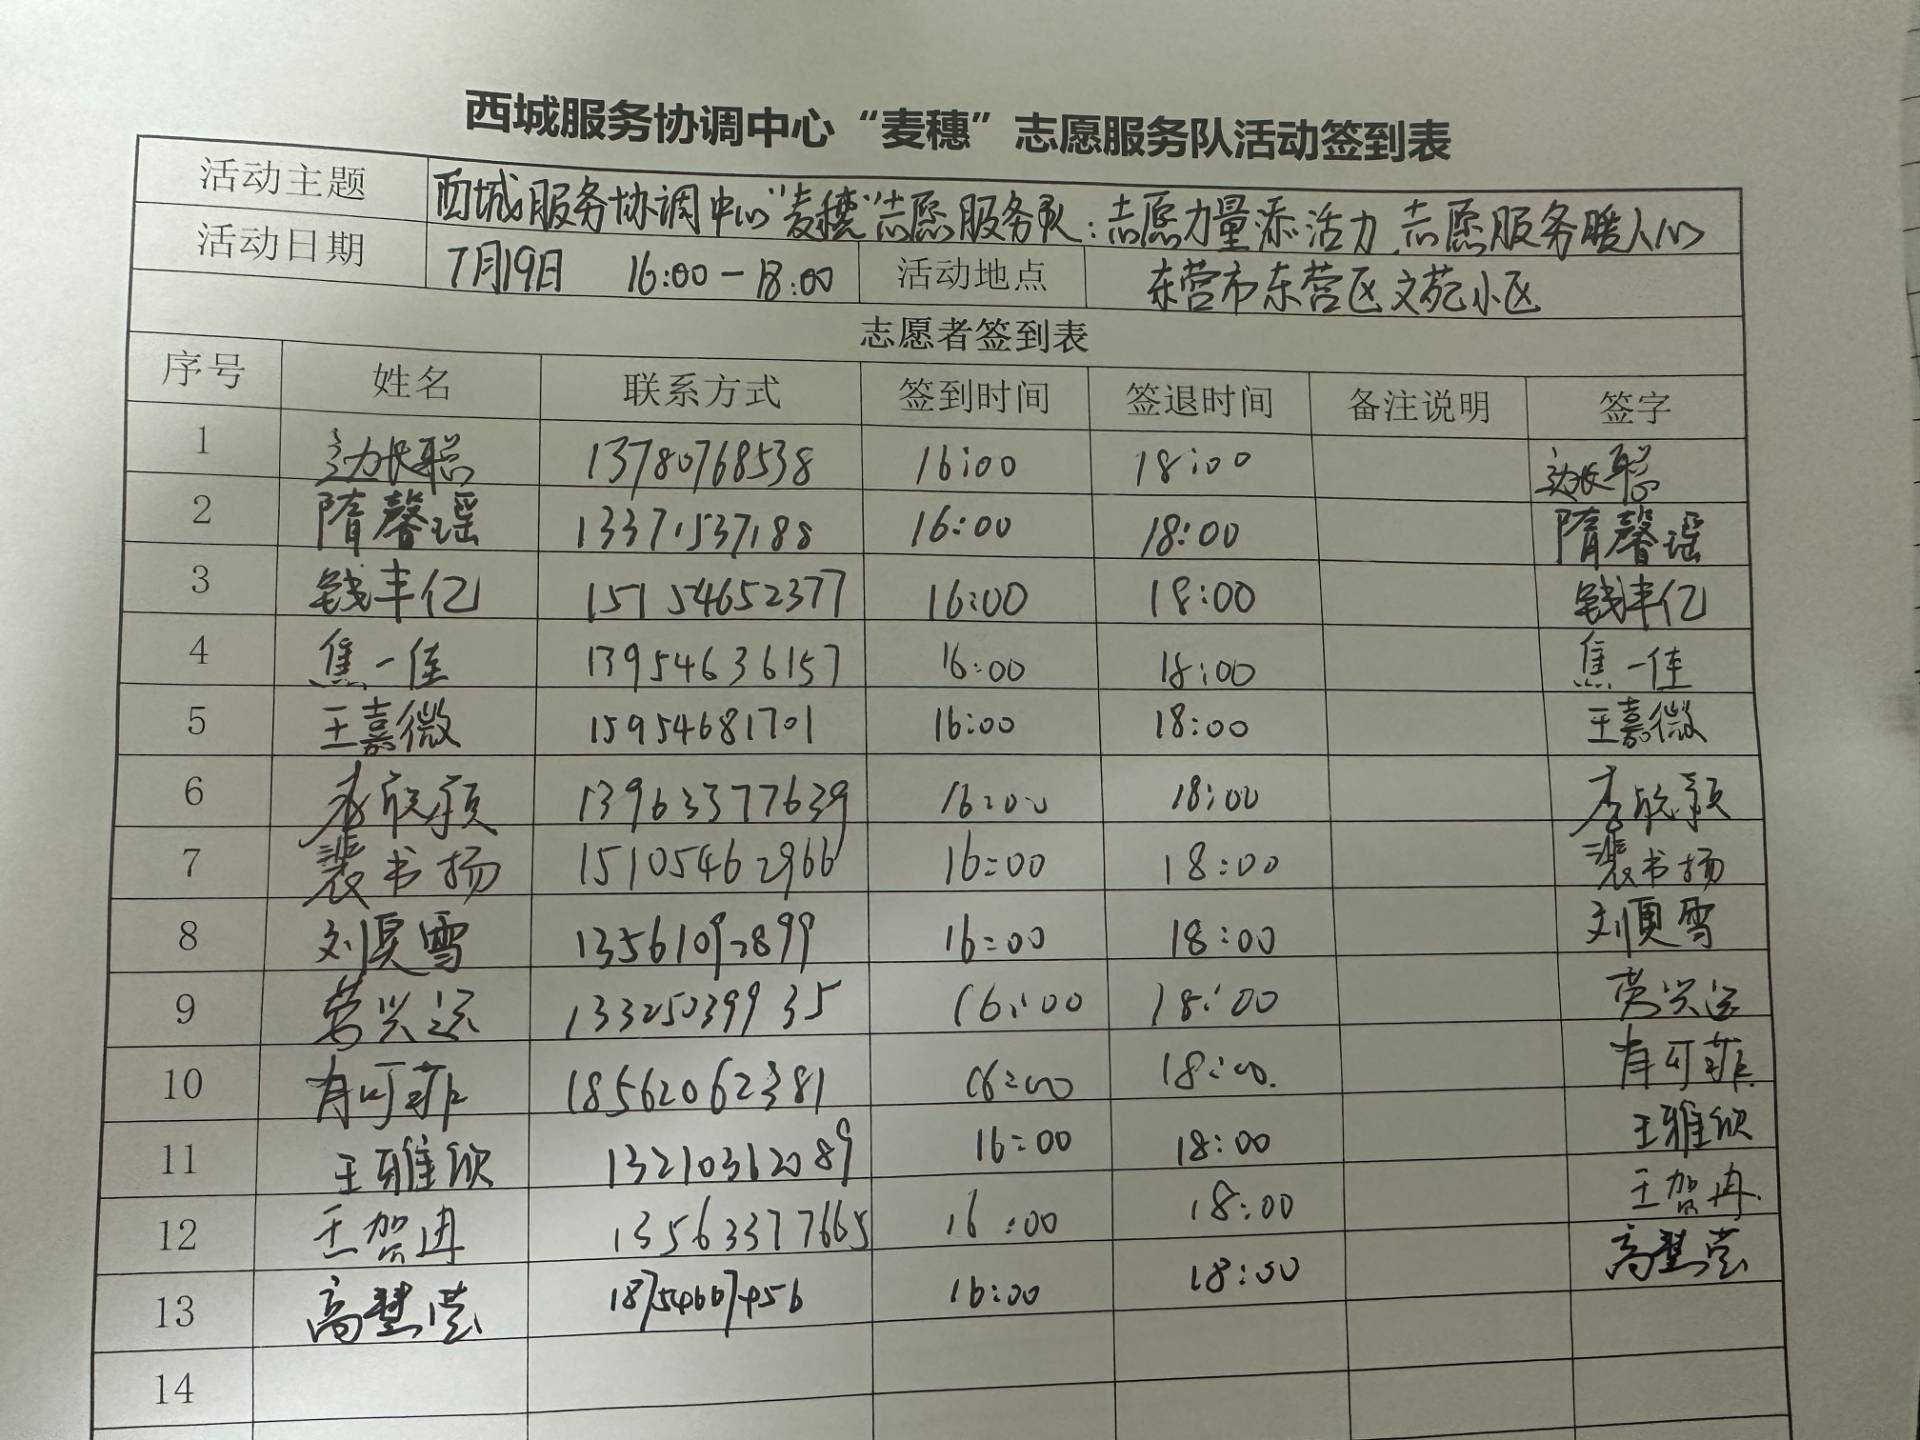 西城服务协调中心“麦穗”志愿服务队活动签到表
活动主题 西城服务协调中心“麦穗”志愿服务队：志愿力量添活力，志愿服务暖人心
活动日期 7月19日 16:00-18:00 活动地点 东营市东营区文苑小区
志愿者签到表
序号 姓名 联系方式 签到时间 签退时间 备注说明 签字
1 边长聪 13780768538 16:00 18:00 边长聪
2 隋馨瑶 13371537188 16:00 18:00 隋馨瑶
3 钱丰亿 15154652377 16:00 18:00 钱丰亿
4 焦一佳 13954636157 16:00 18:00 焦一佳
5 王嘉微 15954681701 16:00 18:00 王嘉微
6 李欣颖 13963377639 16:00 18:00 李欣颖
7 裴书扬 15105462966 16:00 18:00 裴书扬
8 刘夏雪 13561092899 16:00 18:00 刘夏雪
9 兴运 13325039935 16:00 18:00 兴运
10 肖可菲 18562062381 16:00 18:00 肖可菲
11 王雅欣 13210362089 16:00 18:00 王雅欣
12 王贺冉 13563377665 16:00 18:00 王贺冉
13 高慧莹 18754667456 16:00 18:00 高慧莹
14